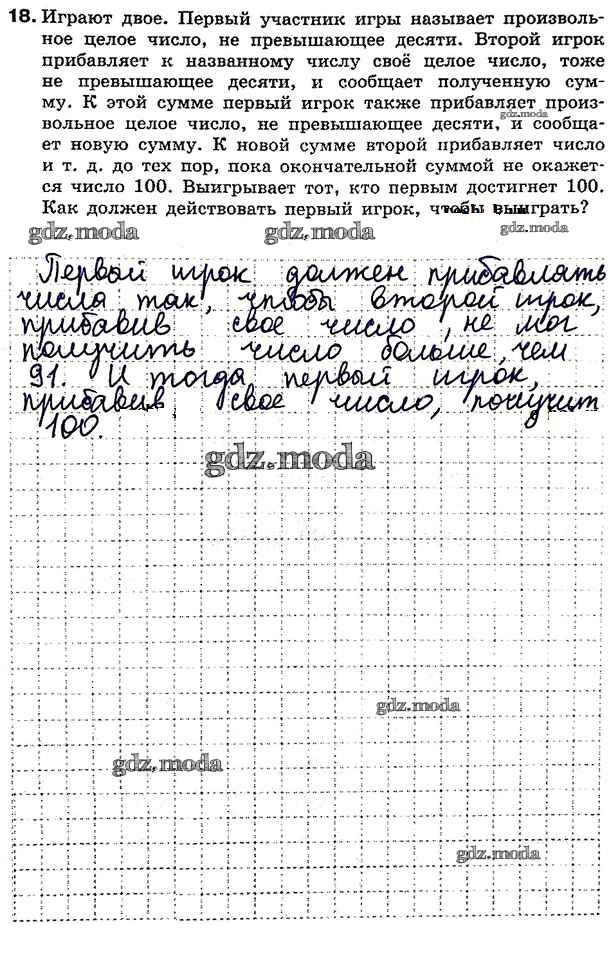 18. Играют двое. Первый участник игры называет произволь-
ное целое число, не превышающее десяти. Второй игрок
прибавляет к названному числу своё целое число, тоже
не превышающее десяти, и сообщает полученную сум-
му. К этой сумме первый игрок также прибавляет произ-
gdz.moda
вольное целое число, не превышающее десяти, и сообща-
ет новую сумму. К новой сумме второй прибавляет число
и т. д. до тех пор, пока окончательной суммой не окажет-
ся число 100. Выигрывает тот, кто первым достигнет 100.
Как должен действовать первый игрок, чтобы выиграть?
gdz.moda gdz.moda gdz.moda
Первый игрок должен прибавлять
числа так, чтобы второй игрок,
прибавив свое число, не мог
получить число больше, чем
91. И тогда первый игрок,
прибавив, свое число, получит
100.
gdz.moda
gdz.moda
gdz.moda
gdz.moda